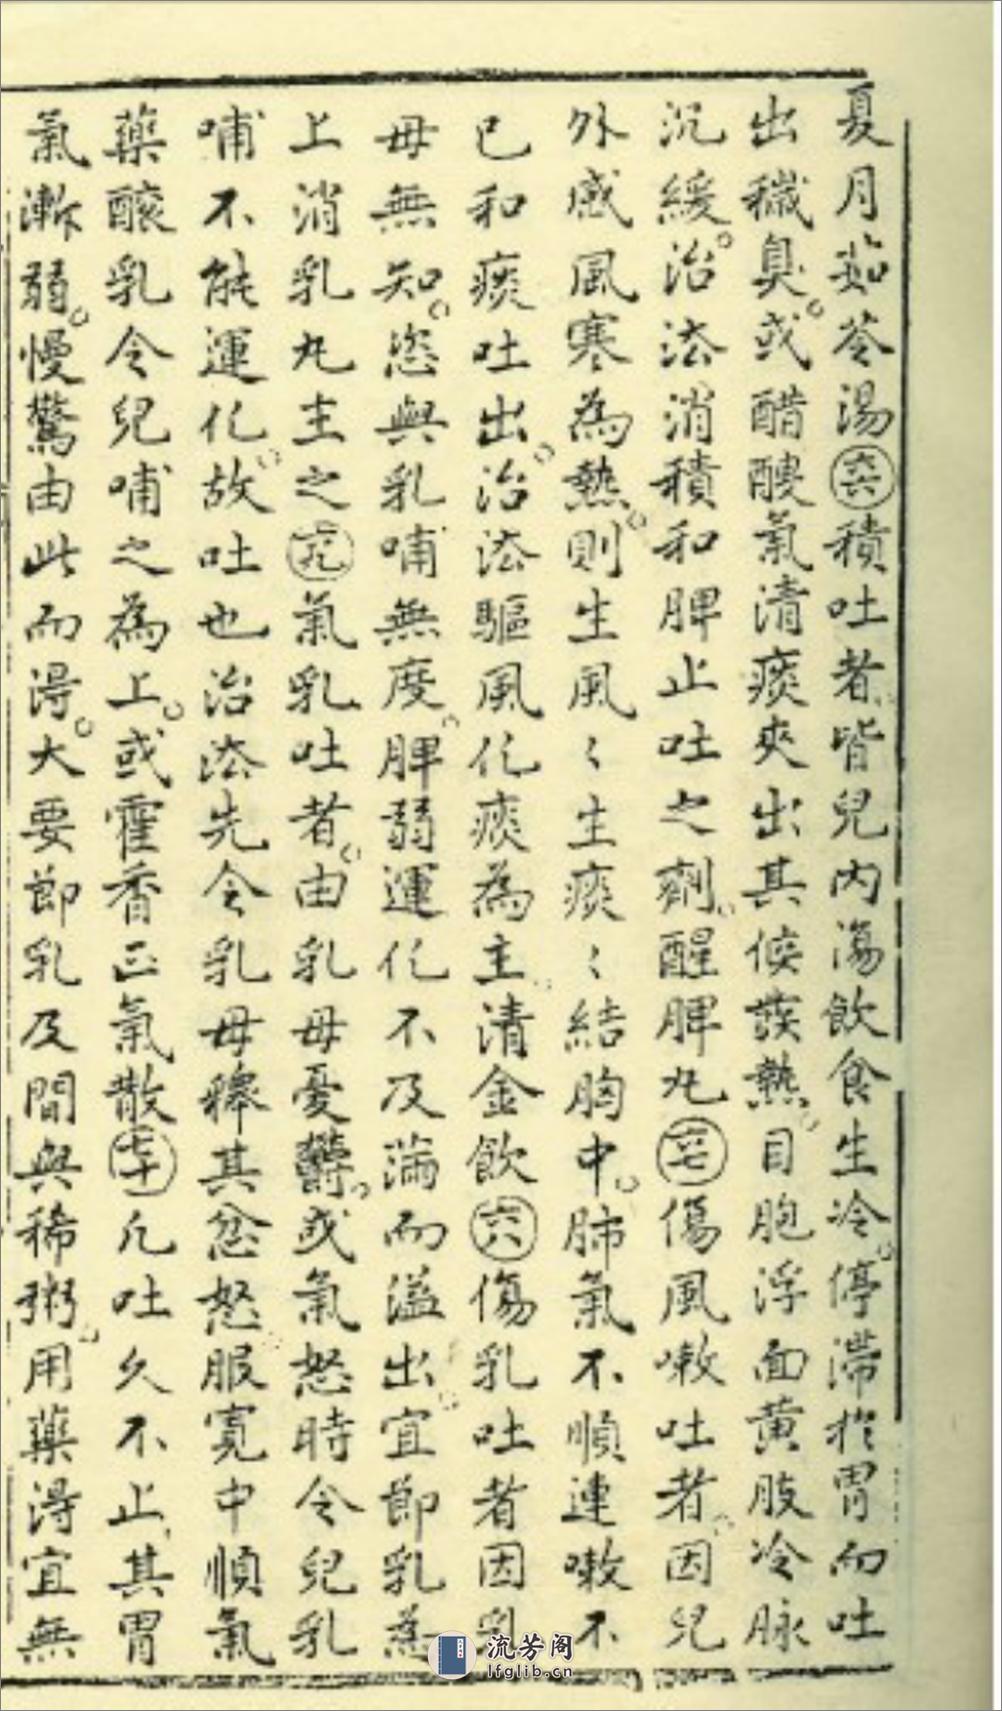 夏月茹苓湯㊅㊅積吐者皆兒內傷飲食生冷。停滯於胃而吐
出穢臭。或醋酸氣清痰夾出其候發熱。目胞浮面黃肢冷脉
沉緩。治法消積和脾止吐之劑。醒脾丸傷風嗽吐者。因兒
外感風寒為熱。則生風〻生痰〻結胸中。肺氣不順連嗽不
已和痰吐出。治法驅風化痰為主。清金飲傷乳吐者因乳
母無知。恣與乳哺無度。脾弱運化不及滿而溢出。宜節乳為
上消乳丸主之氣乳吐者。由乳母憂鬱。或氣怒時令兒乳
哺不能運化。故吐也治法先令乳母稱其忿怒服寬中順氣
藥釀乳令兒哺之為上。或霍香正氣散凡吐久不止。其胃
氣漸弱。慢驚由此而得。大要節乳及間與稀粥。用藥得宜無
流芳阁
lfglib.cn